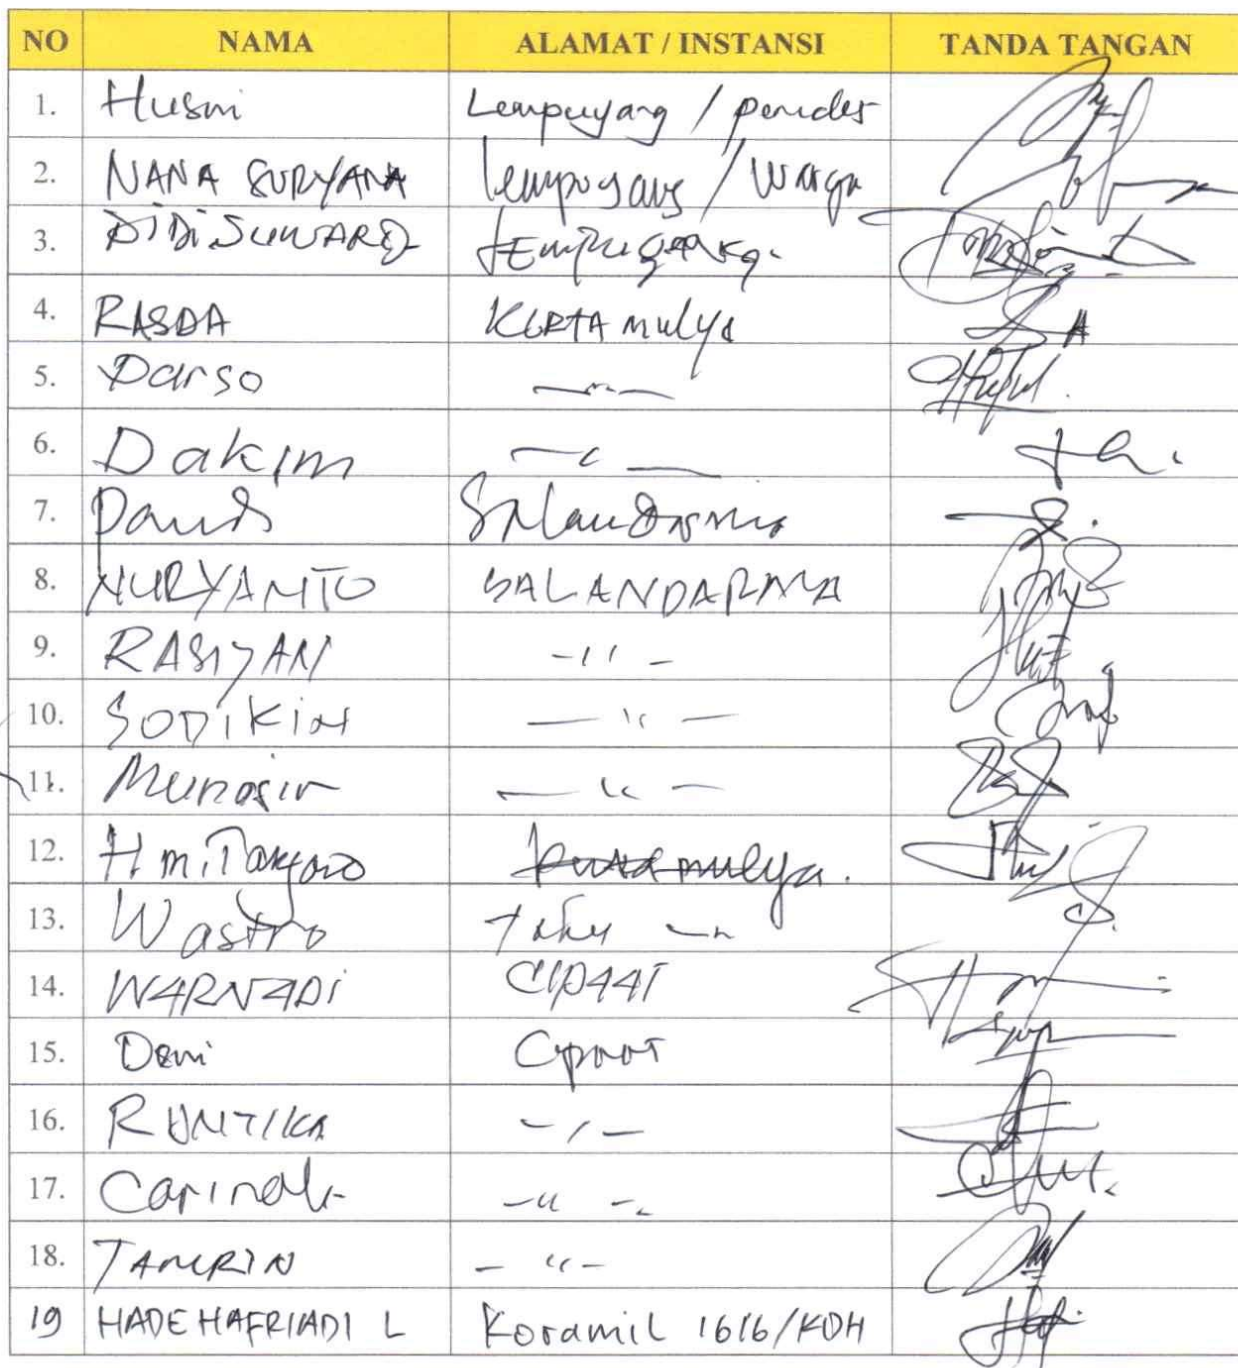 NO NAMA ALAMAT / INSTANSI TANDA TANGAN
1. Husni Lempuyang / pemdes
2. NANA SURYANA Lempuyang / Warga
3. DIDI SUWARDI LEMPUYANG.
4. RASDA KERTAMULYA
5. Darso —〃—
6. Dakim —〃—
7. Daud Salandarma
8. NURYANTO SALANDARMA
9. RASIYAN —〃—
10. SODIKIN —〃—
11. Munasir —〃—
12. H. M. kertamulya.
13. Wastro —〃—
14. WARNADI CIPAAT
15. Deni Cipaat
16. RUNTIKA —〃—
17. Carinah —〃—
18. TAMRIN —〃—
19 HADE HAFRIADI L Koramil 1616/KDH